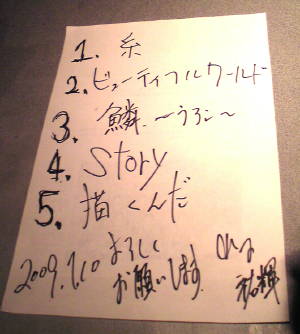 1. 糸
2. ビューティフルワールド
3. 鱗 〜うろこ〜
4. Story
5. 描くんだ
2009.1.10 よろしく
お願いします。
祐輝